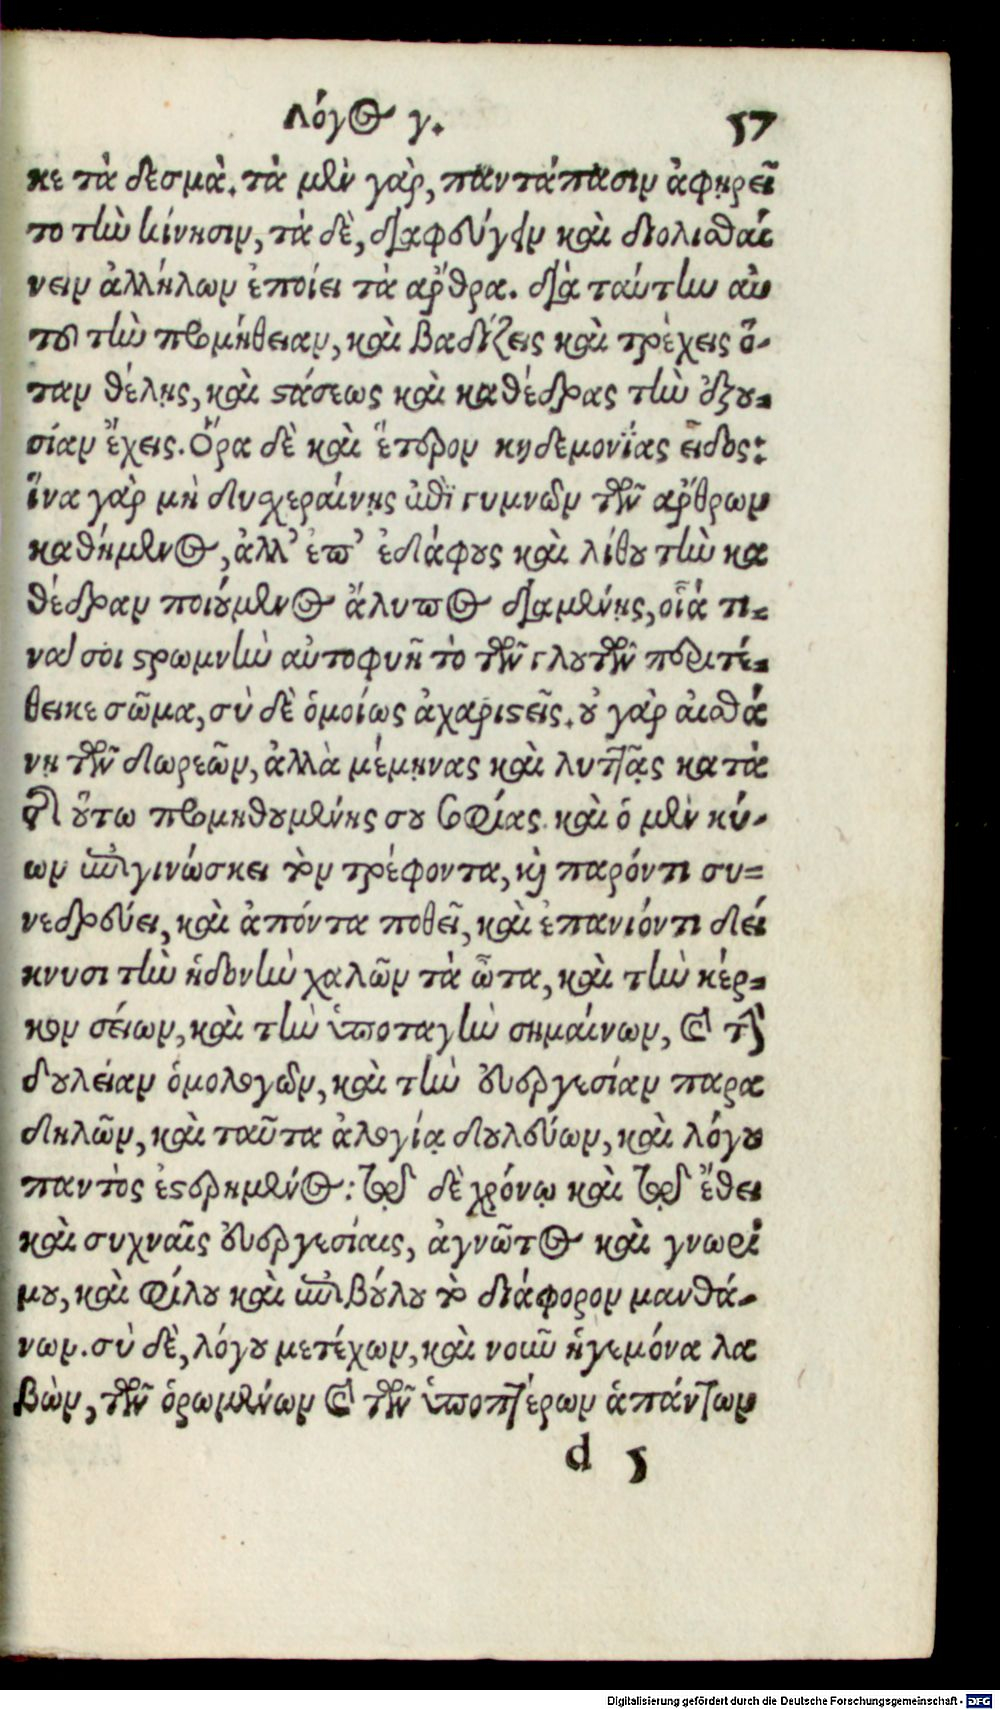 Λόγος γ. 57
κε τὰ δεσμὰ. τὰ μὲν γὰρ, παντάπασιν ἀφῃρεῖ
το τὴν κίνησιν, τὰ δὲ, διαφεύγειν καὶ διολισθαί
νειν ἀλλήλων ἐποίει τὰ ἄρθρα. διὰ ταύτην αὐ
τοῦ τὴν προμήθειαν, καὶ βαδίζεις καὶ τρέχεις ὅ-
ταν θέλῃς, καὶ στάσεως καὶ καθέδρας τὴν ἐξου-
σίαν ἔχεις. Ὅρα δὲ καὶ ἕτερον κηδεμονίας εἶδος:
ἵνα γὰρ μὴ δυσχεραίνῃς ἐπὶ γυμνῶν τῶν ἄρθρων
καθήμενος, ἀλλ' ἐπ' ἐδάφους καὶ λίθου τὴν κα
θέδραν ποιούμενος ἄλυπος διαμένῃς, οἷά τι-
να σοι στρωμνὴν αὐτοφυῆ τὸ τῶν γλουτῶν περιτέ-
θεικε σῶμα, σὺ δὲ ὁμοίως ἀχαριστεῖς. οὐ γὰρ αἰσθά
νῃ τῶν δωρεῶν, ἀλλὰ μέμηνας καὶ λυττᾷς κατὰ
τῆς οὕτω προμηθουμένης σου σοφίας. καὶ ὁ μὲν κύ-
ων ἐπιγινώσκει τὸν τρέφοντα, καὶ παρόντι συ-
νεδρεύει, καὶ ἀπόντα ποθεῖ, καὶ ἐπανιόντι δεί
κνυσι τὴν ἡδονὴν χαλῶν τὰ ὦτα, καὶ τὴν κέρ-
κον σείων, καὶ τὴν ὑποταγὴν σημαίνων, καὶ τὴν
δουλείαν ὁμολογῶν, καὶ τὴν εὐεργεσίαν παρα
δηλῶν, καὶ ταῦτα ἀλογίᾳ δουλεύων, καὶ λόγου
παντὸς ἐστερημένος: τῷ δὲ χρόνῳ καὶ τῷ ἔθει
καὶ συχναῖς εὐεργεσίαις, ἀγνῶτος καὶ γνωρί
μου, καὶ φίλου καὶ ἐπιβούλου τὸ διάφορον μανθά-
νων. σὺ δὲ, λόγου μετέχων, καὶ νοῦν ἡγεμόνα λα
βὼν, τῶν ὁρωμένων καὶ τῶν ὑποπτέρων ἁπάντων
d 5
Digitalisierung gefördert durch die Deutsche Forschungsgemeinschaft - DFG